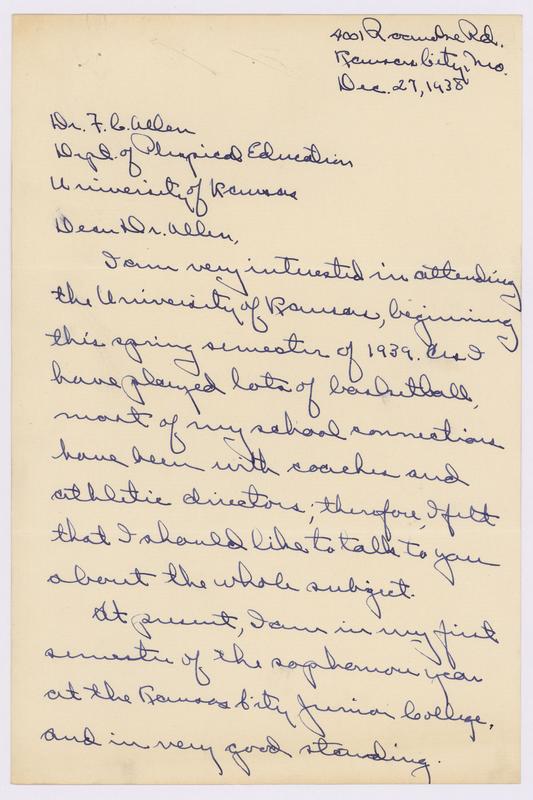 4001 Roanoke Rd.
Kansas City, Mo.
Dec. 27, 1938
Dr. F. C. Allen
Dept. of Physical Education
University of Kansas
Dear Dr. Allen,
I am very interested in attending
the University of Kansas, beginning
this spring semester of 1939. As I
have played lots of basketball,
most of my school connections
have been with coaches and
athletic directors; therefore, I felt
that I should like to talk to you
about the whole subject.
At present, I am in my first
semester of the sophomore year
at the Kansas City Junior College,
and in very good standing.